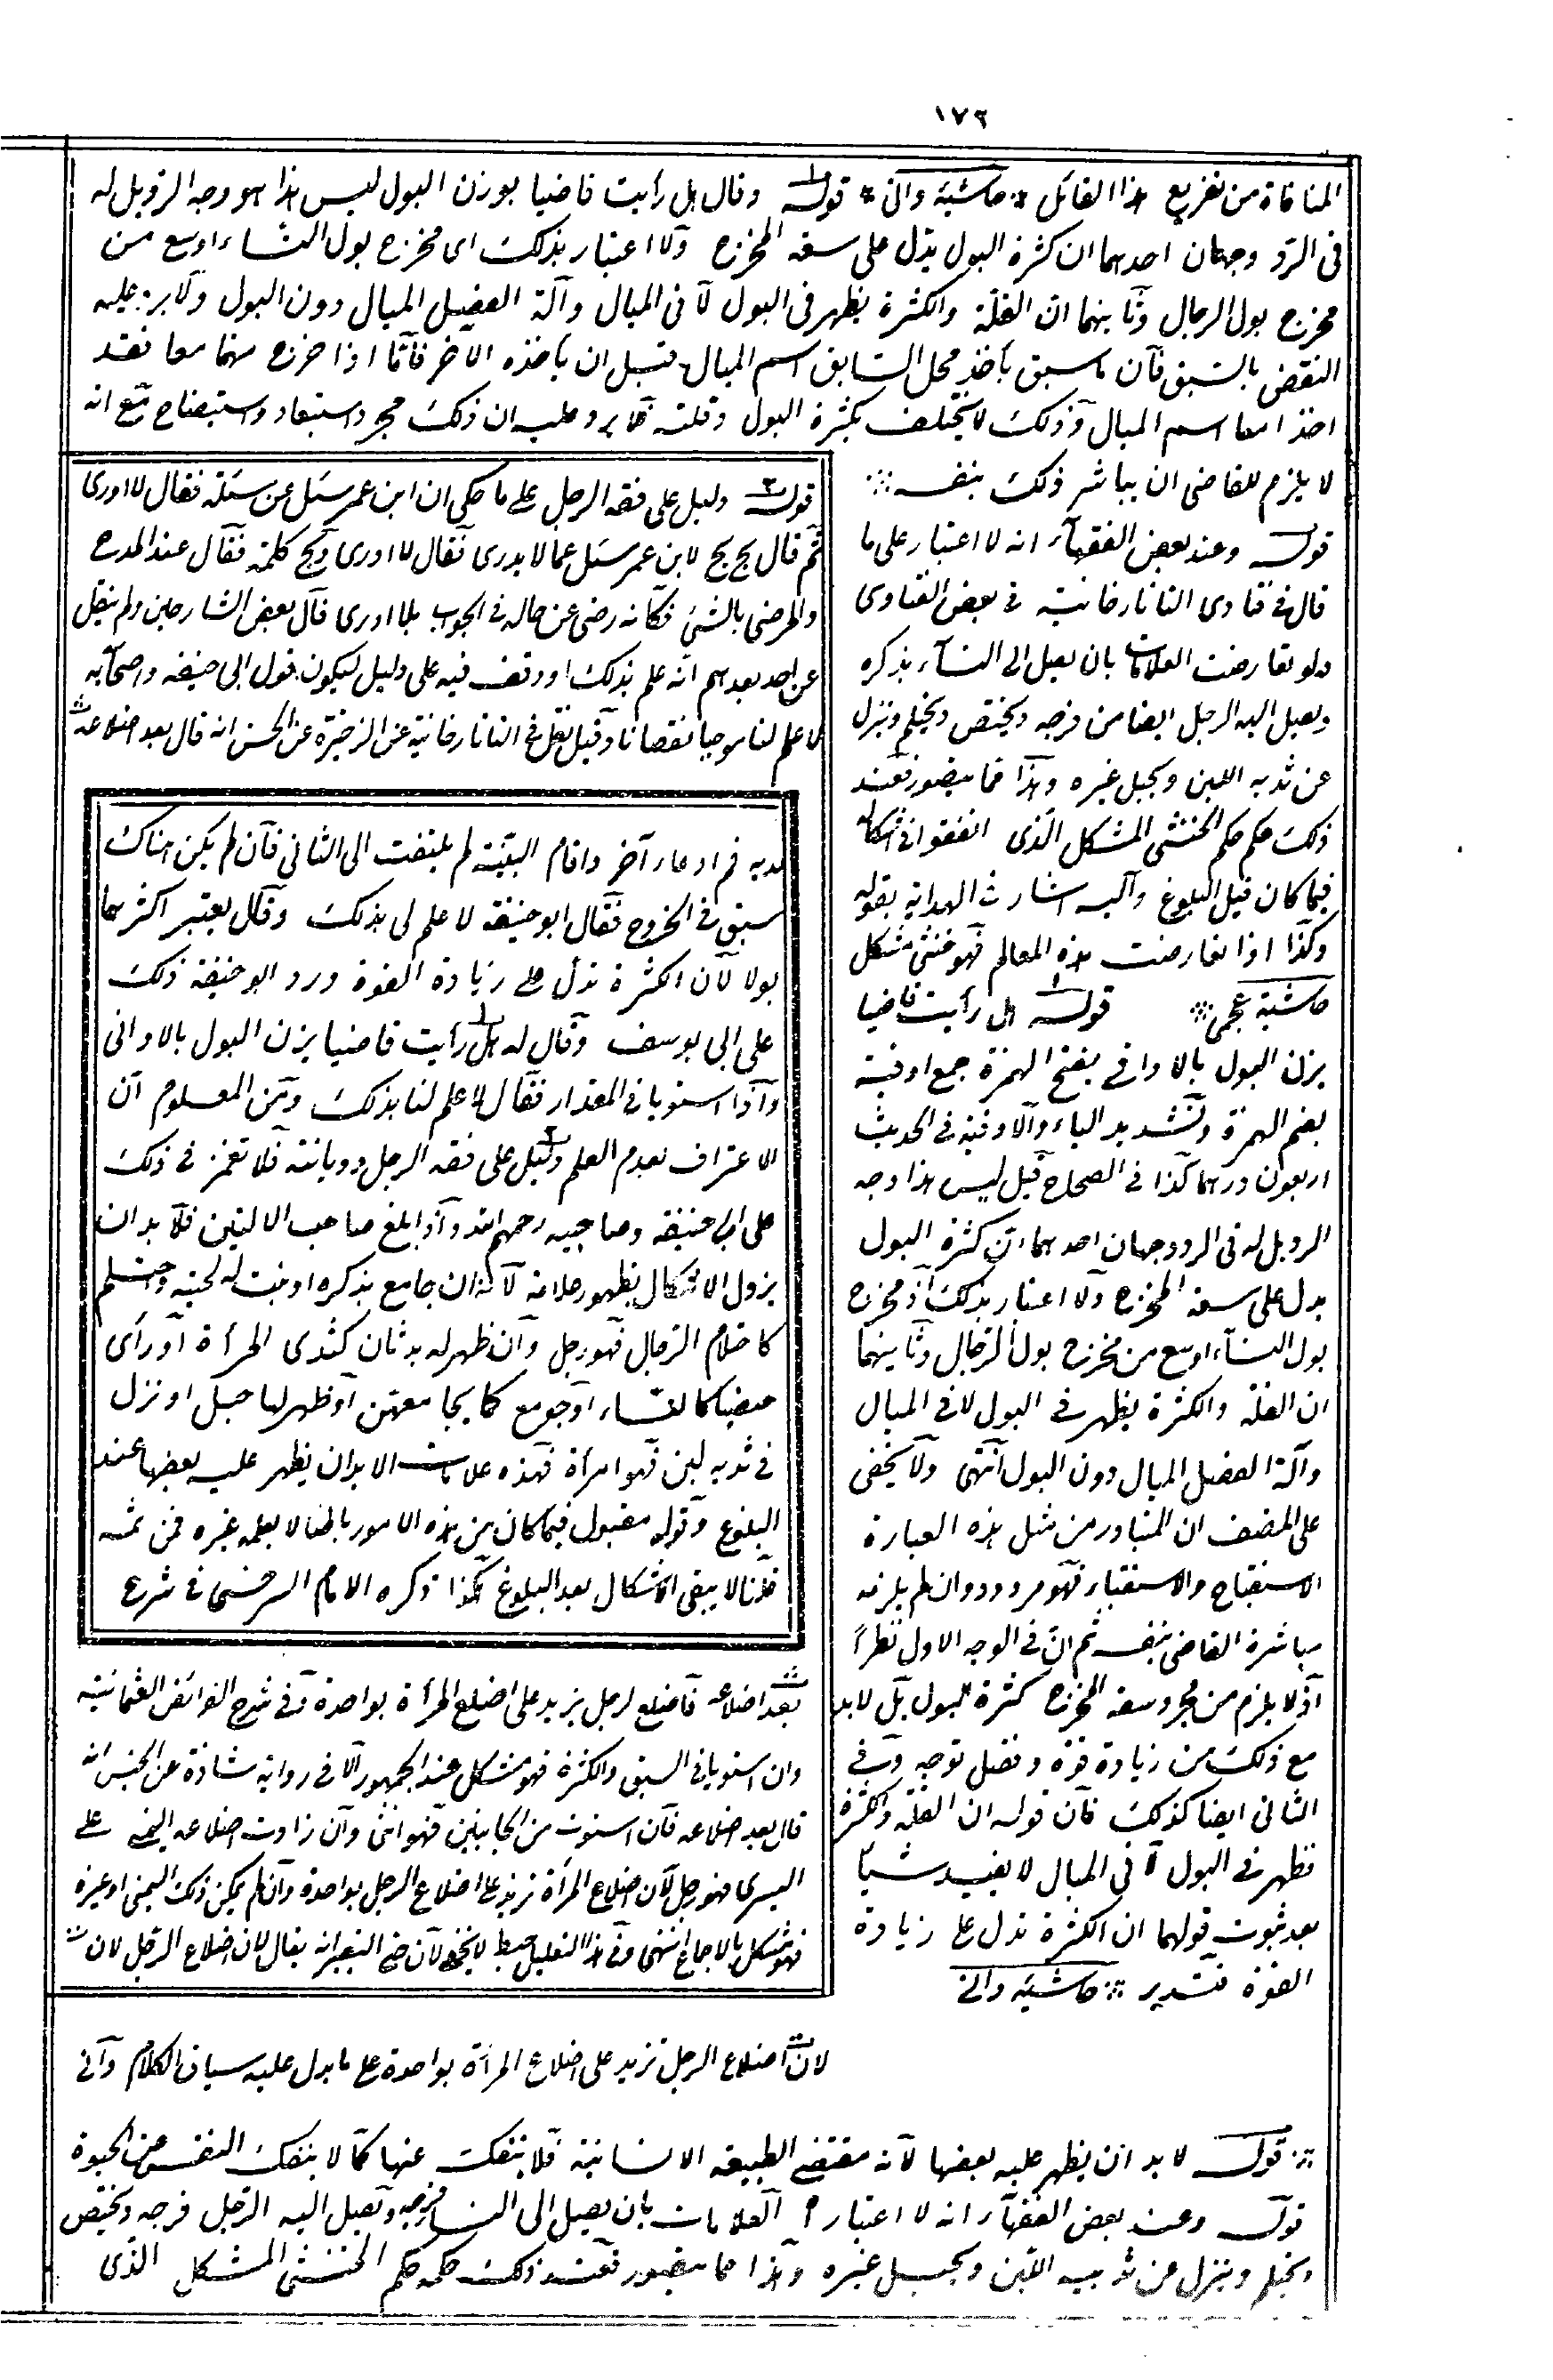 ١٧٦
المنافاة من تفريع هذا القائل * حاشية وانى * قوله وقال هل رأيت قاضيا يوزن البول ليس هذا هو وجه الرد بل له
فى الرد وجهان احدهما ان كثرة البول يدل على سعة المخرج ولا اعتبار بذلك اى مخرج بول النساء اوسع من
مخرج بول الرجال وثانيهما ان القلة والكثرة يظهر فى البول لا فى المبال وآلة الفصل المبال دون البول ولا يرد عليه
النقض بالسبق فان ما سبق يأخذ محل السابق اسم المبال قبل ان يأخذه الآخر فاما اذا خرج منهما معا فقد
اخذا معا اسم المبال وذلك لا يختلف بكثرة البول وقلته فلا يرد عليه ان ذلك مجرد استبعاد واستقباح مع انه
لا يلزم للقاضى ان يباشر ذلك بنفسه
قوله وعند بعض الفقهآء انه لا اعتبار على ما
قال فى فتاوى التاتارخانية فى بعض الفتاوى
ولو تعارضت العلامات بان يميل الى النسآء بذكره
ويميل اليه الرجل ايضا من فرجه ويختص ويحتلم وينزل
عن ثديه اللبن ويحبل غيره وهذا مما يتصور فعند
ذلك حكم حكم الخنثى المشكل الذى اتفقوا فى اشكاله
فيما كان قبل البلوغ واليه اشار فى الهداية بقوله
وكذا اذا تعارضت هذه المعالم فهو خنثى مشكل
حاشية عجمى قوله هل رأيت قاضيا
يزن البول بالاواقى بفتح الهمزة جمع اوقية
بضم الهمزة وتشديد الياء والاوقية فى الحديث
اربعون درهما كذا فى الصحاح قيل ليس هذا وجه
الرد بل له فى الرد وجهان احدهما ان كثرة البول
يدل على سعة المخرج ولا اعتبار بذلك اذ مخرج
بول النسآء اوسع من مخرج بول الرجال وثانيهما
ان القلة والكثرة يظهر فى البول لا فى المبال
وآلة الفصل المبال دون البول انتهى ولا يخفى
على المنصف ان المتبادر من مثل هذه العبارة
الاستقباح والاستقباء فهو مردود وان لم يلزمه
مباشرة القاضى بنفسه ثم ان فى الوجه الاول نظرا
اذ لا يلزم من مجرد سعة المخرج كثرة البول بل لا بد
مع ذلك من زيادة قوة وفضل توجه وفى
الثانى ايضا كذلك فان قوله ان القلة والكثرة
تظهر فى البول لا فى المبال لا يفيد شيأ
بعد ثبوت قولهما ان الكثرة تدل على زيادة
القوة فتدبر حاشية وانى
قوله دليل على فقه الرجل على ما حكى ان ابن عمر سئل عن مسئلة فقال لا ادرى
ثم قال بخ بخ لابن عمر سئل عما لا يدرى فقال لا ادرى وبخ كلمة تقال عند المدح
والرضى بالشئ فكأنه رضى عن حاله فى الجواب بلا ادرى قال بعض الشارحين ولم ينقل
عن احد بعدهم انه علم بذلك او وقف فيه على دليل ليكون قول ابى حنيفه واصحآبه
لا علم لنا موجبا نقصانا وقيل نقل فى التاتارخانية عن الذخيرة عن الحسن انه قال يعد اضلاعه
يديه فم ادعاء آخر واقام البينة لم يلتفت الى الثانى فان لم يكن هناك
سبق فى الخروج فقال ابو حنيفة لا علم لى بذلك وقالا يعتبر اكثرهما
بولا لان الكثرة تدل على زيادة القوة ورد ابو حنيفة ذلك
على ابى يوسف وقال له هل رأيت قاضيا يزن البول بالاوانى
واذا استويا فى المقدار فقالا لا علم لنا بذلك ومن المعلوم ان
الاعتراف بعدم العلم دليل على فقه الرجل وديانته فلا تغمز فى ذلك
على ابى حنيفة وصاحبيه رحمهم الله واذا بلغ صاحب الآلتين فلا بد ان
يزول الاشكال بظهور علامة لانه ان جامع بذكره او نبت له لحية واحتلم
كاحتلام الرجال فهو رجل وان ظهر له ثديان كثدى المرأة او رأى
حيضا كالنساء او جومع كما يجامعهن او ظهر لها حبل او نزل
فى ثديه لبن فهو امرأة فهذه علامات لا بد ان يظهر عليه بعضها عند
البلوغ وقوله مقبول فيما كان من هذه الامور باطنا لا يعلمه غيره فمن ثمه
قلنا لا يبقى الاشكال بعد البلوغ هكذا ذكره الامام السرخسى فى شرح
يعد اضلاعه فاضلع لرجل يزيد على اضلع المرأة بواحدة وفى شرح الفرائض العثمانية
وان استويا فى السبق والكثرة فهو مشكل عند الجمهور الا فى رواية شاذة عن الحسن انه
قال يعد اضلاعه فان استوت من الجانبين فهو انثى وان زادت اضلاعه اليمنى على
اليسرى فهو رجل لان اضلاع المرأة تزيد على اضلاع الرجل بواحدة وان لم يكن ذلك اليمنى او غيره
فهو مشكل بالاجماع انتهى وفى هذا التعليل خبط لا يخفى لان حق التعبير انه يقال لان اضلاع الرجل لان
لان اضلاع الرجل تزيد على اضلاع المرأة بواحدة على ما يدل عليه سياق الكلام وآنى
قوله لا بد ان يظهر عليه بعضها لانه مقتضى الطبيعة الانسانية فلا ينفك عنها كما لا ينفك النفس عن الحيوة
قوله وعند بعض الفقهآء انه لا اعتبار العلامات بان يميل الى النساء فرجه ويميل اليه الرجل فرجه ويختص
ويحتلم وينزل من ثدييه اللبن ويحبل غيره وهذا مما يتصور فعند ذلك حكمه حكم الخنثى المشكل الذى